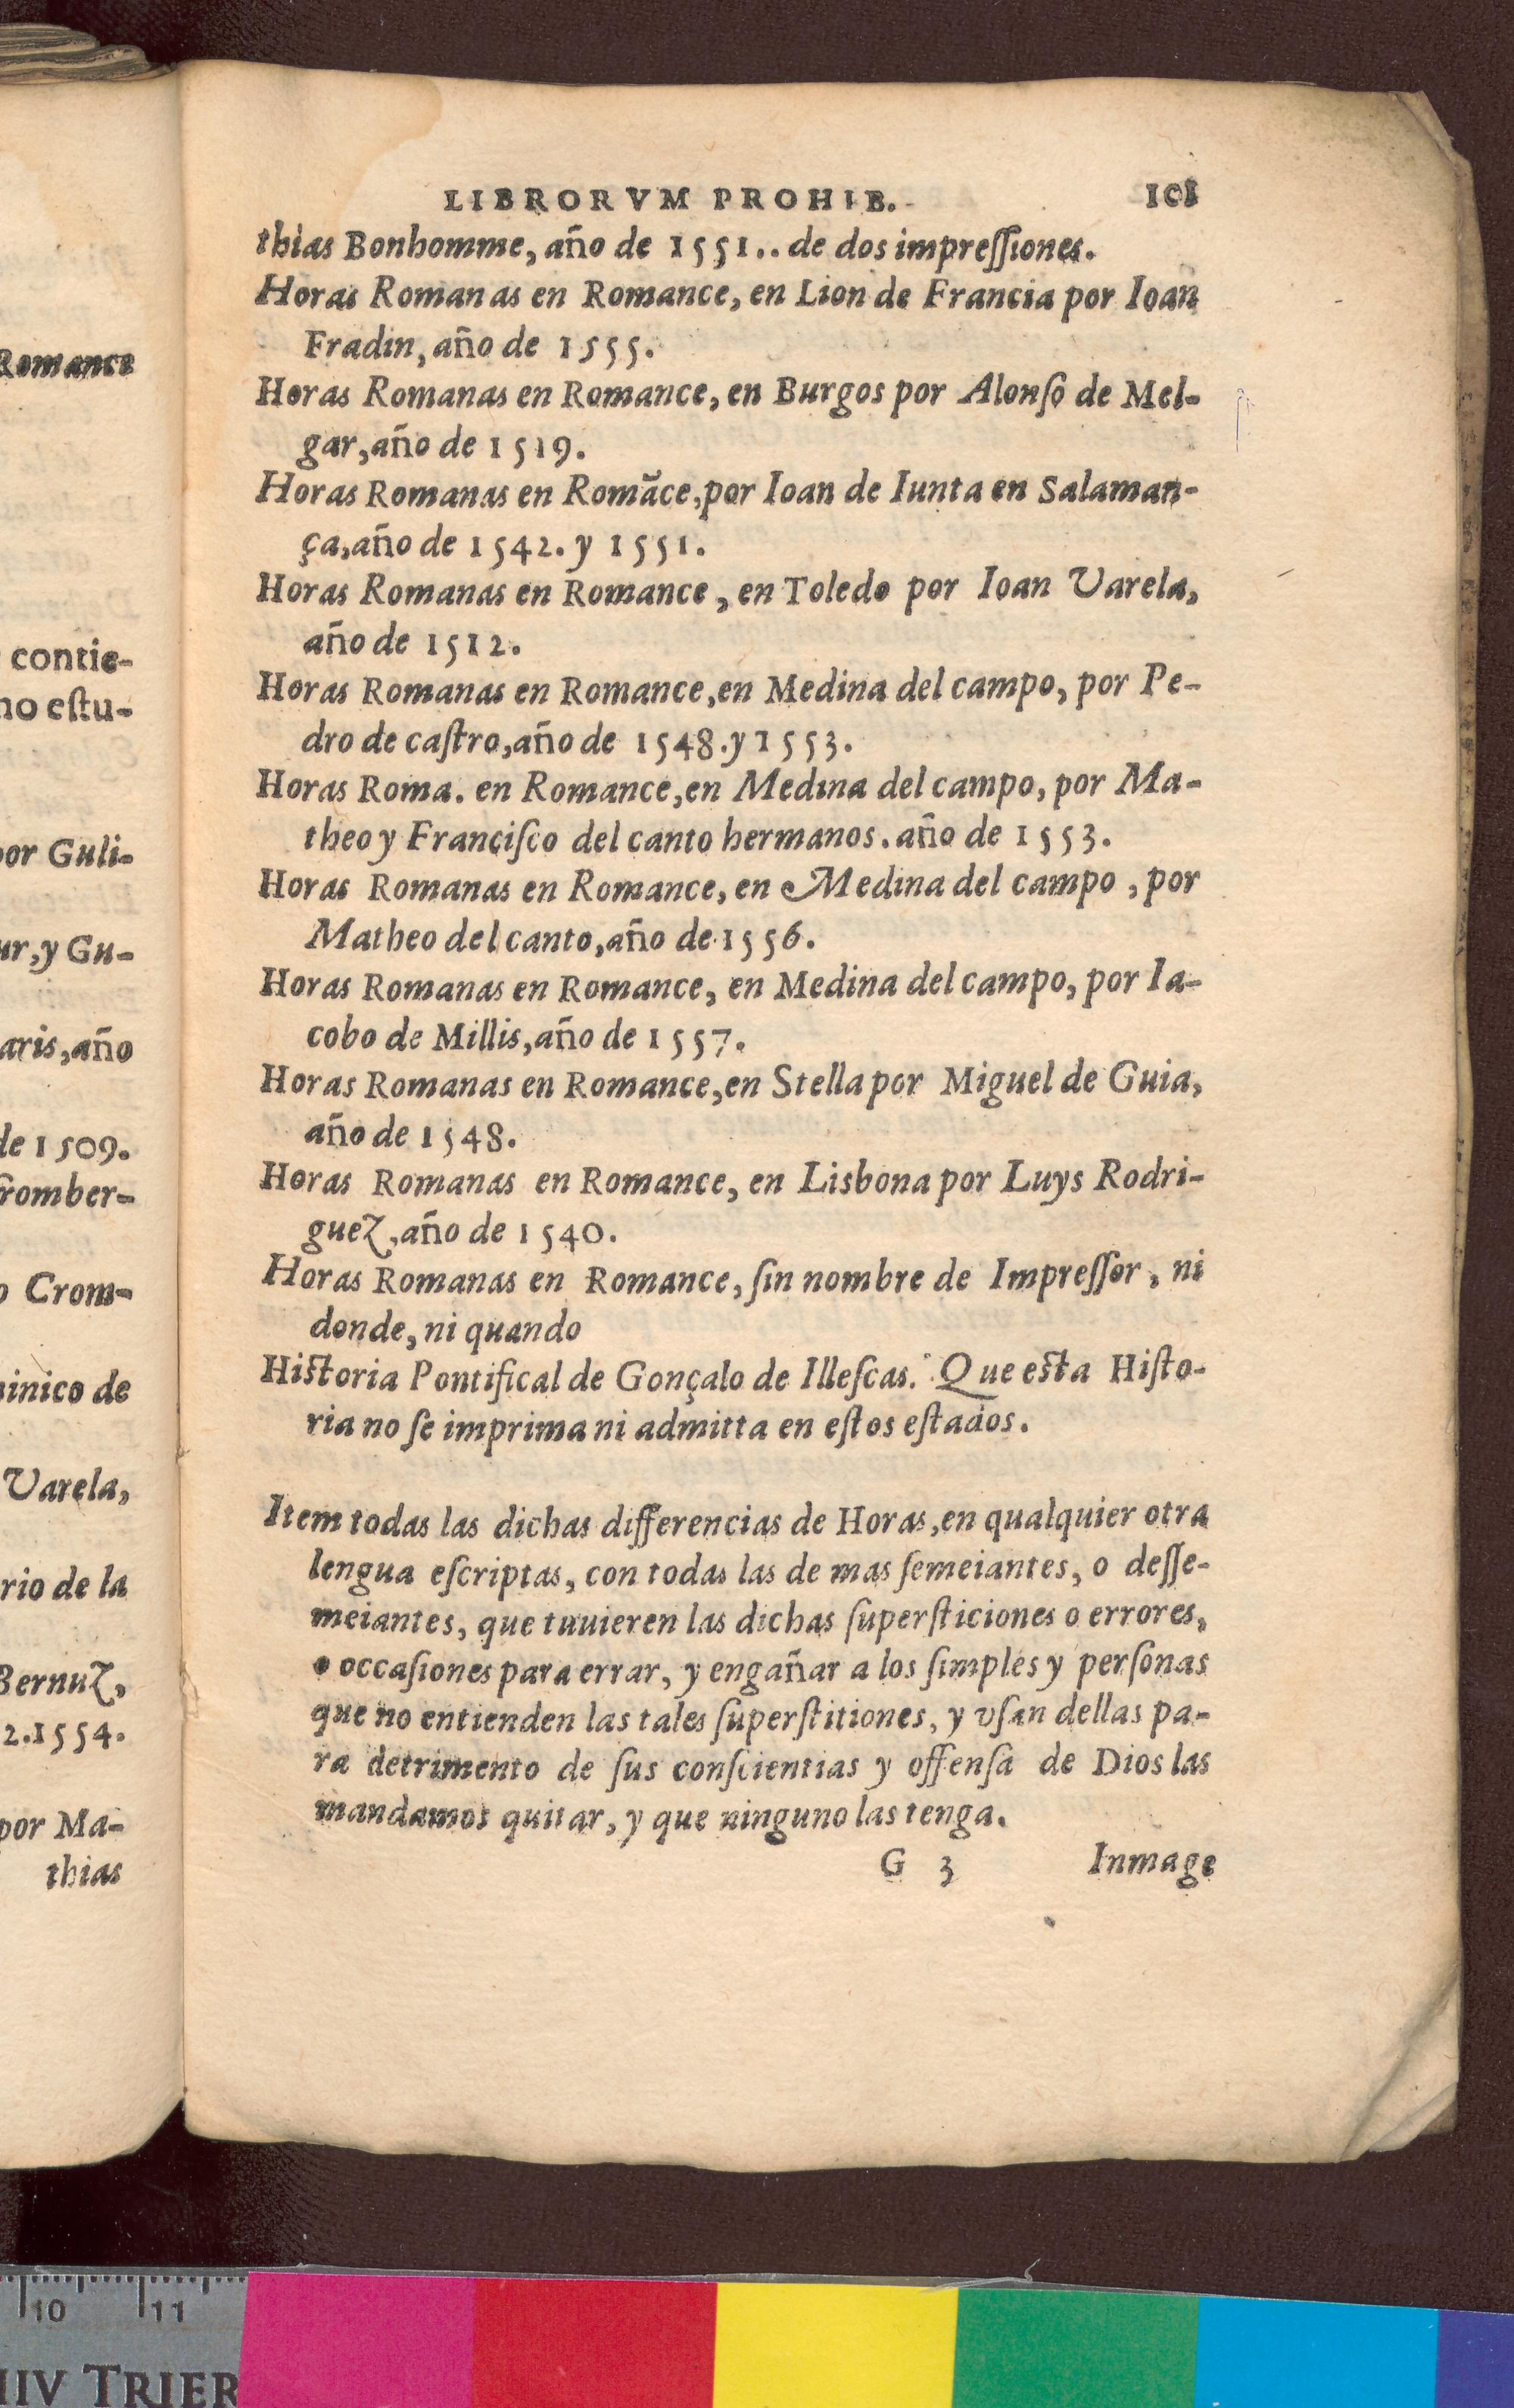 Romance
contie-
no eſtu-
por Guli-
ur,y Gu-
aris,año
de 1509.
romber-
o Crom-
inico de
Varela,
rio de la
Bernuz,
2.1554.
por Ma-
thias
LIBRORVM PROHIB. 101
thias Bonhomme, año de 1551.. de dos impreſſiones.
Horas Romanas en Romance, en Lion de Francia por Ioan
Fradin, año de 1555.
Horas Romanas en Romance, en Burgos por Alonſo de Mel-
gar,año de 1519.
Horas Romanas en Romãce,por Ioan de Iunta en Salaman-
ça,año de 1542. y 1551.
Horas Romanas en Romance, en Toledo por Ioan Varela,
año de 1512.
Horas Romanas en Romance,en Medina del campo, por Pe-
dro de caſtro,año de 1548.y 1553.
Horas Roma. en Romance,en Medina del campo, por Ma-
theo y Franciſco del canto hermanos. año de 1553.
Horas Romanas en Romance, en Medina del campo, por
Matheo del canto,año de 1556.
Horas Romanas en Romance, en Medina del campo, por Ia-
cobo de Millis,año de 1557.
Horas Romanas en Romance,en Stella por Miguel de Guia,
año de 1548.
Horas Romanas en Romance, en Lisbona por Luys Rodri-
guez,año de 1540.
Horas Romanas en Romance, ſin nombre de Impreſſor, ni
donde, ni quando
Hiſtoria Pontifical de Gonçalo de Illeſcas. Que eſta Hiſto-
ria no ſe imprima ni admitta en eſtos eſtados.
Item todas las dichas differencias de Horas,en qualquier otra
lengua eſcriptas, con todas las de mas ſemeiantes, o deſſe-
meiantes, que tuuieren las dichas ſuperſticiones o errores,
o occaſiones para errar, y engañar a los ſimples y perſonas
que no entienden las tales ſuperſtitiones, y vſan dellas pa-
ra detrimento de ſus conſcientias y offenſa de Dios las
mandamos quitar, y que ninguno las tenga.
G 3 Inmage
10 11
HIV TRIER